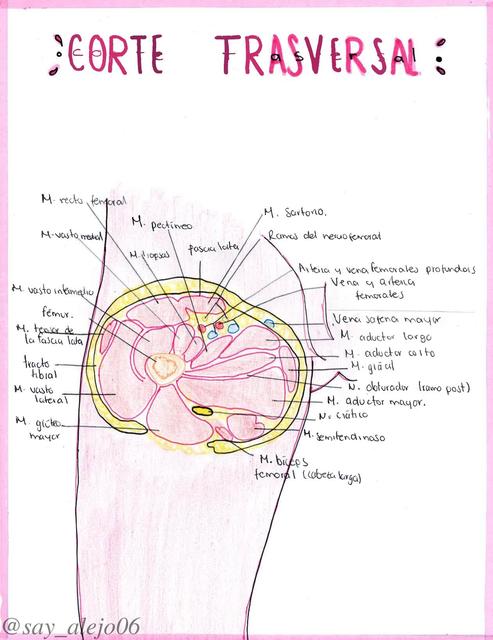 CORTE TRASVERSAL
M. recto femoral
M. vasto medial
M. pectíneo
M. iliopsas
fascia lata
M. Sartorio.
Ramos del nervio femoral
Arteria y vena femorales profundas
Vena y arteria
femorales
Vena safena mayor
M. aductor largo
M. aductor corto
M. grácil
N. obturador (ramo post)
M. aductor mayor.
N. ciático
M. semitendinoso
M. bíceps
femoral (cabeza larga)
M. vasto intermedio
femur.
M. tensor de
la fascia lata
tracto
tibial
M. vasto
lateral
M. glúteo
mayor
@say_alejo06